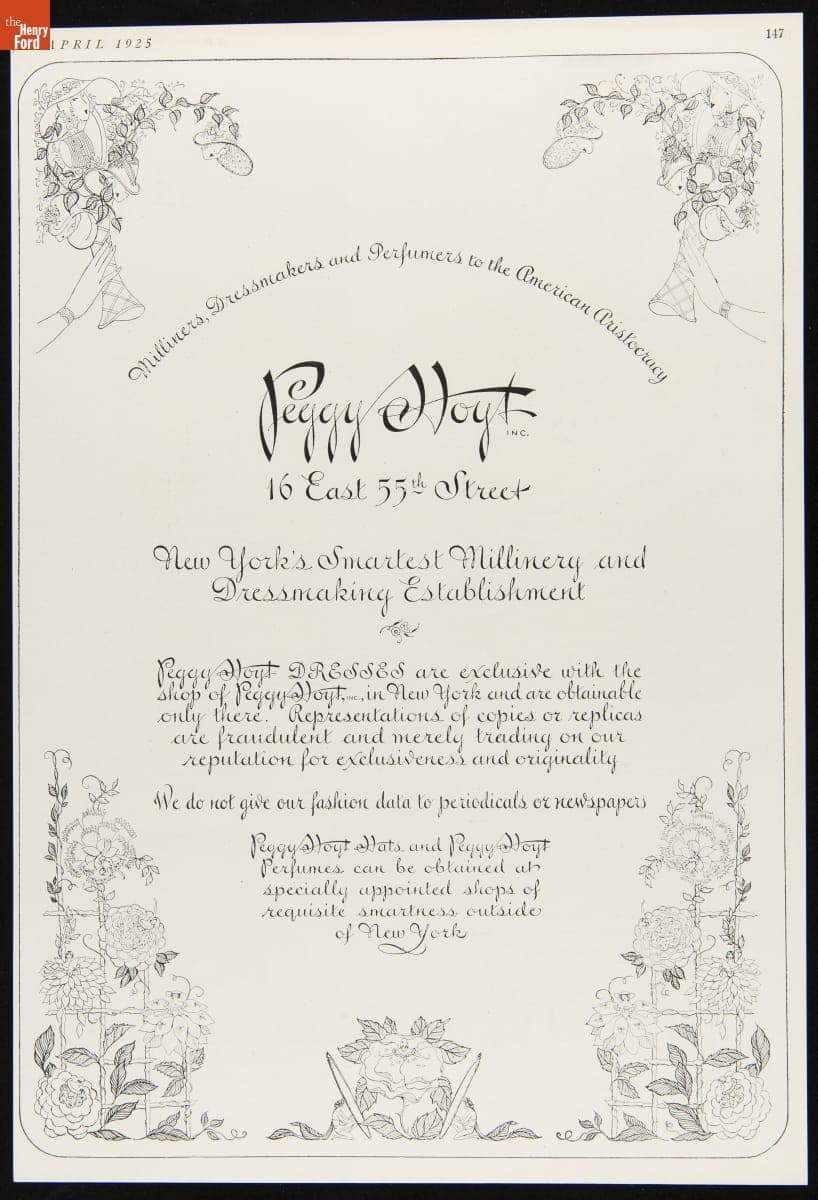 the
Henry
Ford
APRIL 1925
147
Milliners, Dressmakers and Perfumers to the American Aristocracy
Peggy Hoyt
INC.
16 East 55th Street
New York's Smartest Millinery and
Dressmaking Establishment
Peggy Hoyt DRESSES are exclusive with the
shop of Peggy Hoyt, INC., in New York and are obtainable
only there. Representations of copies or replicas
are fraudulent and merely trading on our
reputation for exclusiveness and originality
We do not give our fashion data to periodicals or newspapers
Peggy Hoyt Hats and Peggy Hoyt
Perfumes can be obtained at
specially appointed shops of
requisite smartness outside
of New York